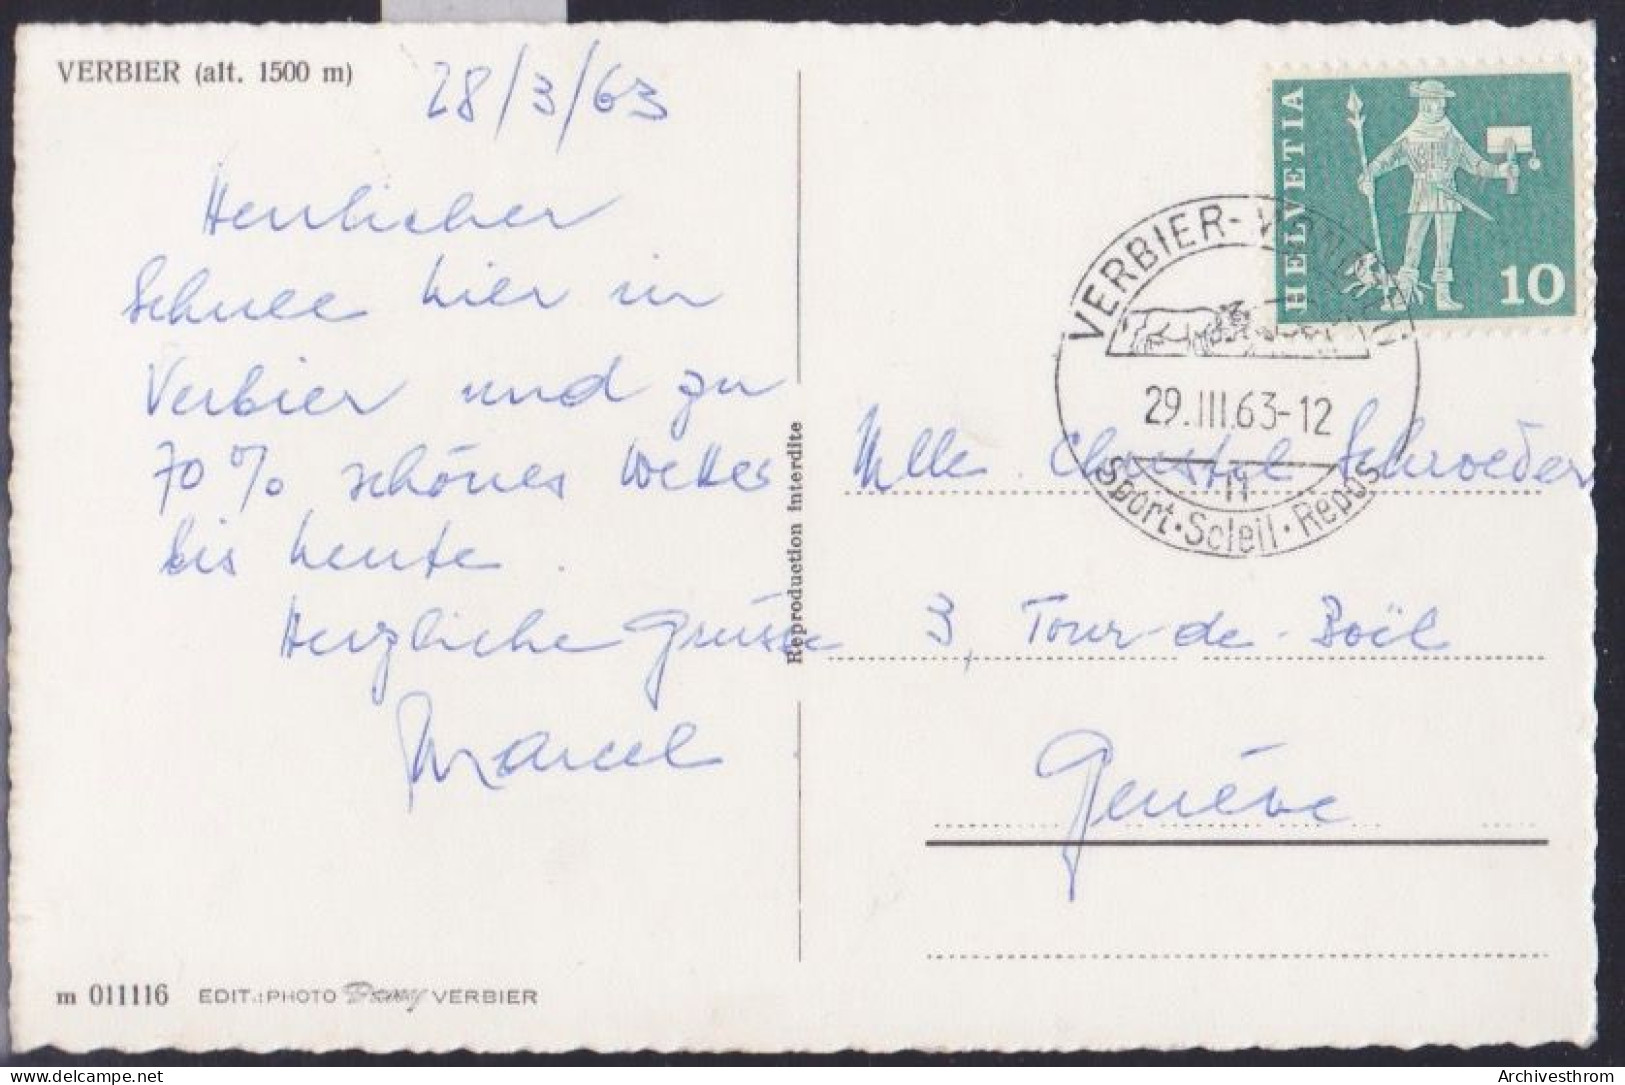 VERBIER (alt. 1500 m)
28/3/63
Herrlicher
Schnee hier in
Verbier und zu
70% schönes Wetter
bis heute.
Herzliche Grüsse
Marcel
m 011116 EDIT.: PHOTO Darry VERBIER
Reproduction interdite
HELVETIA
10
VERBIER-
29.III.63-12
Sport · Soleil · Repos
Mlle. Christel Schroeder
3, Tour-de-Boël
Genève
www.delcampe.net
Archivesthrom